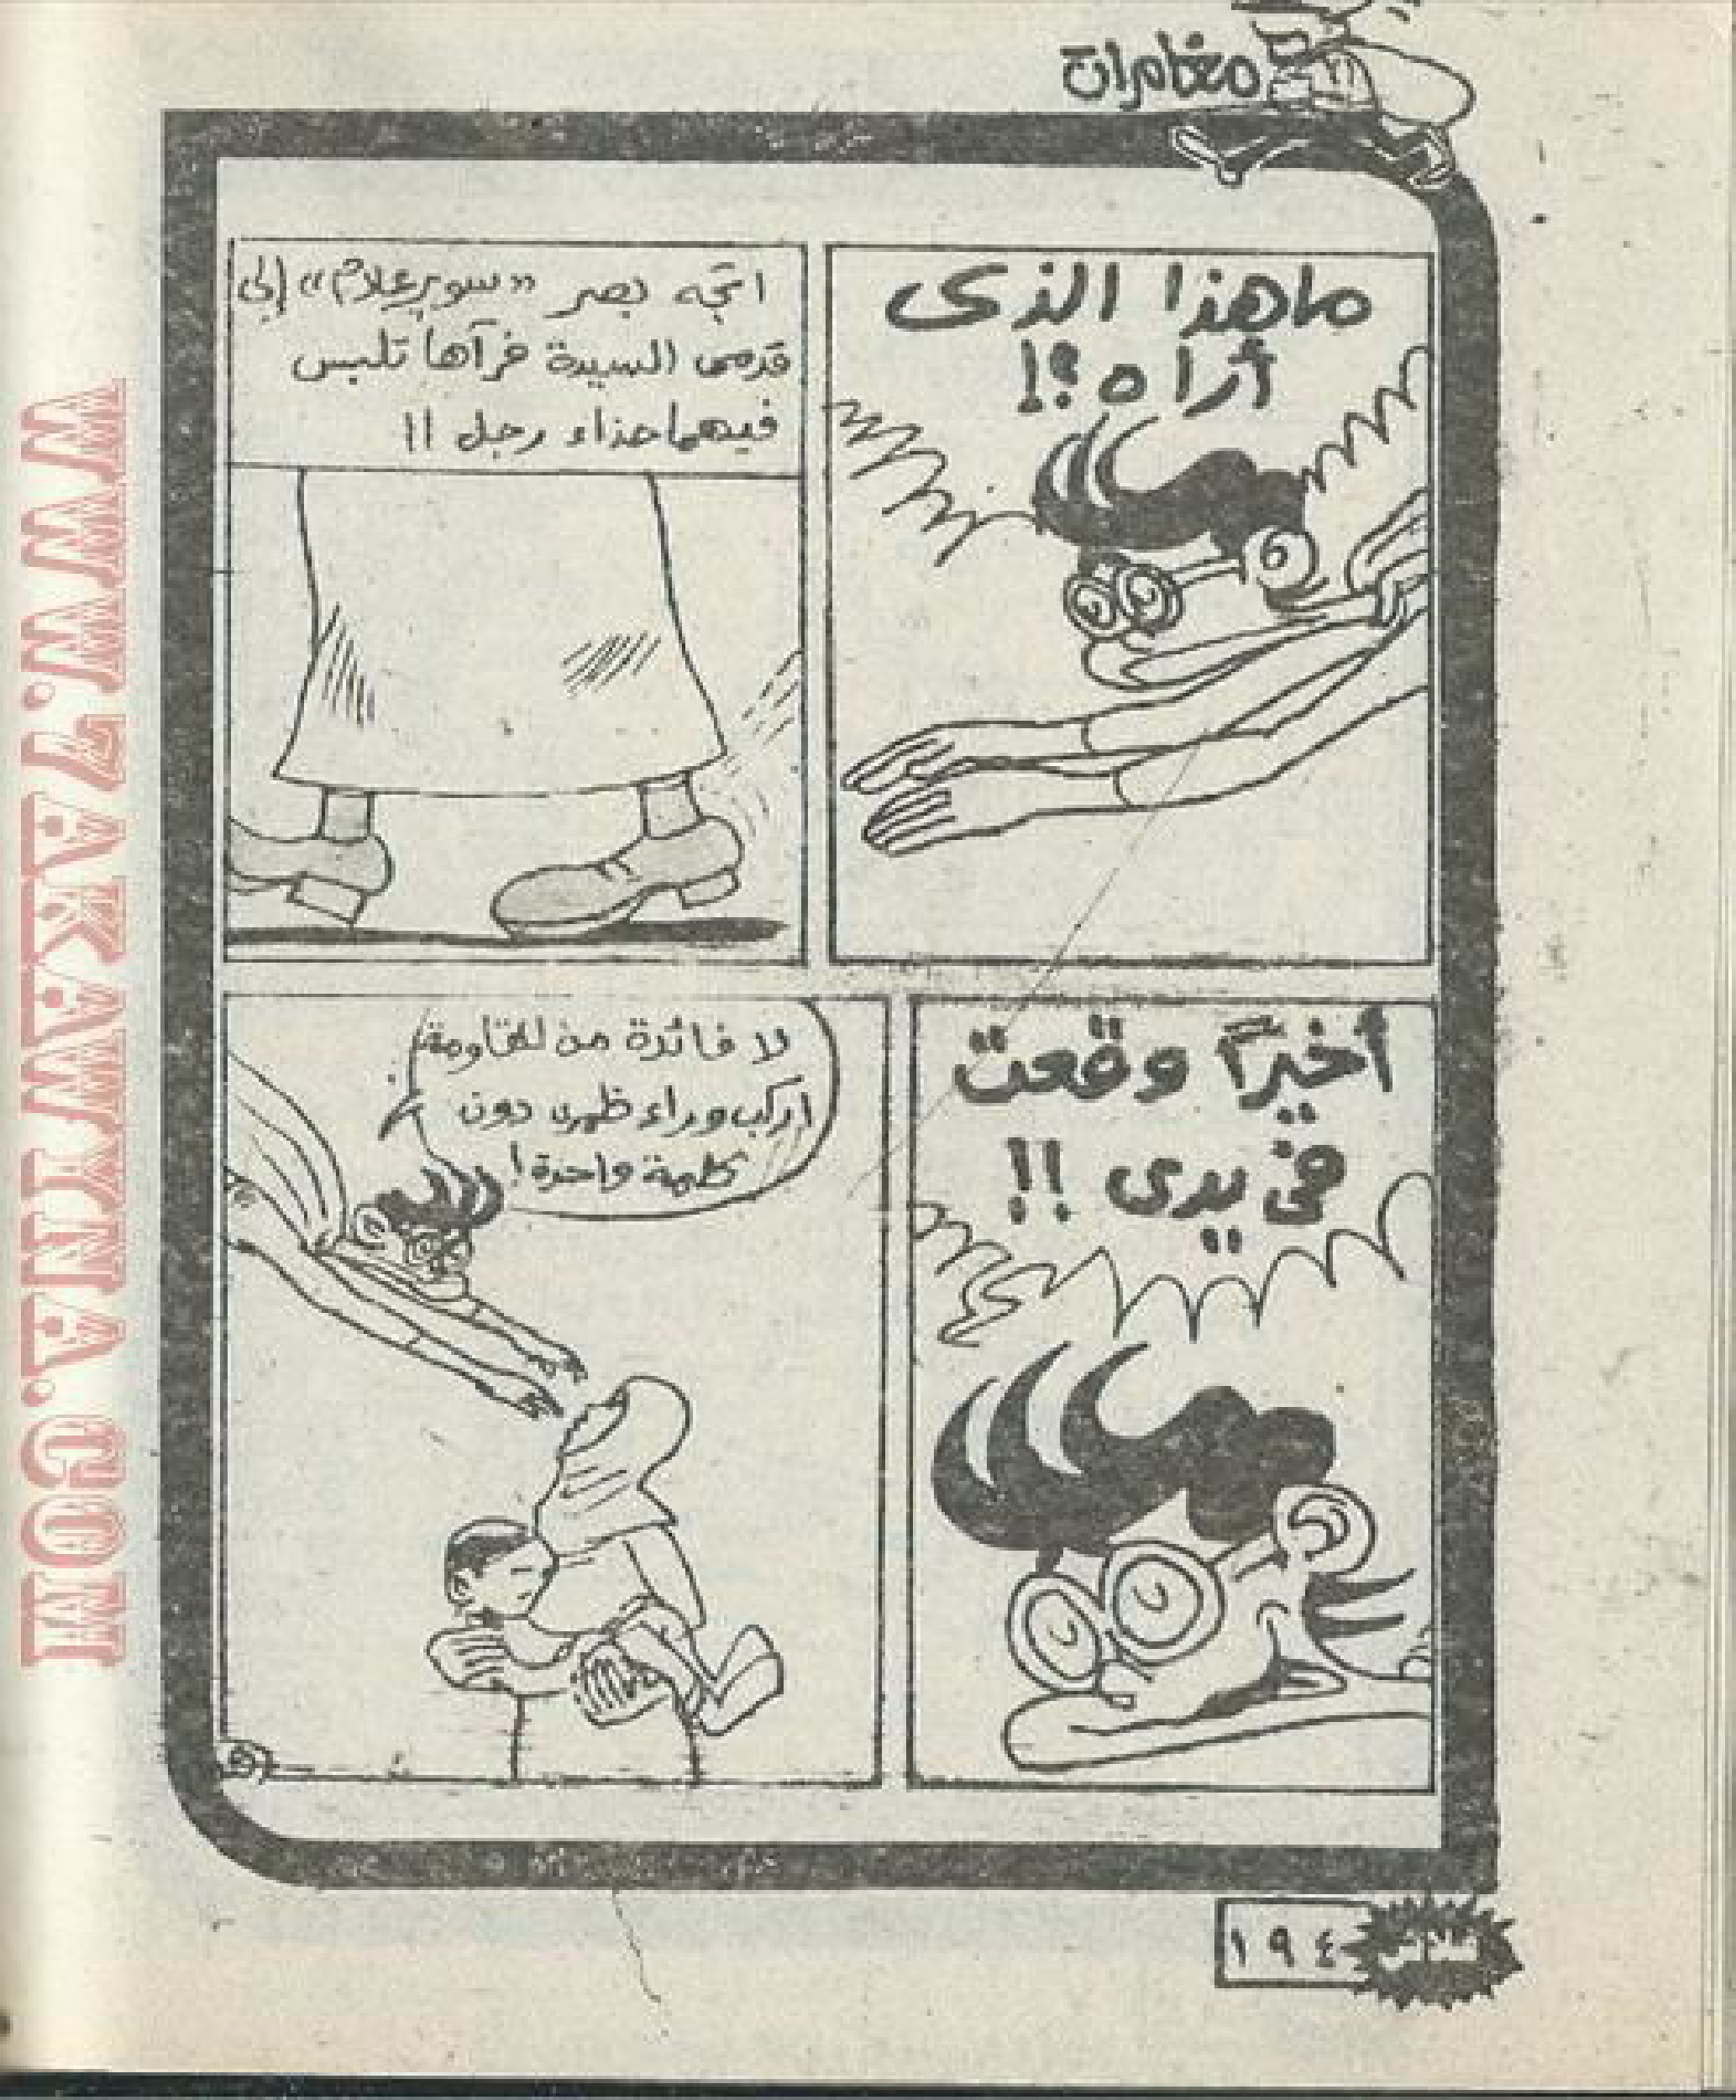 مغامرات
ما هذا الذى
أراه ؟!
اتجه بصر «سوبر علام» إلى
قدمى السيدة فرآها تلبس
فيهما حذاء رجل !!
أخيرًا وقعت
فى يدى !!
لا فائدة من المقاومة
اركب وراء ظهرى دون
كلمة واحدة !
١٩٤
WWW.7AKAWITNA.COM